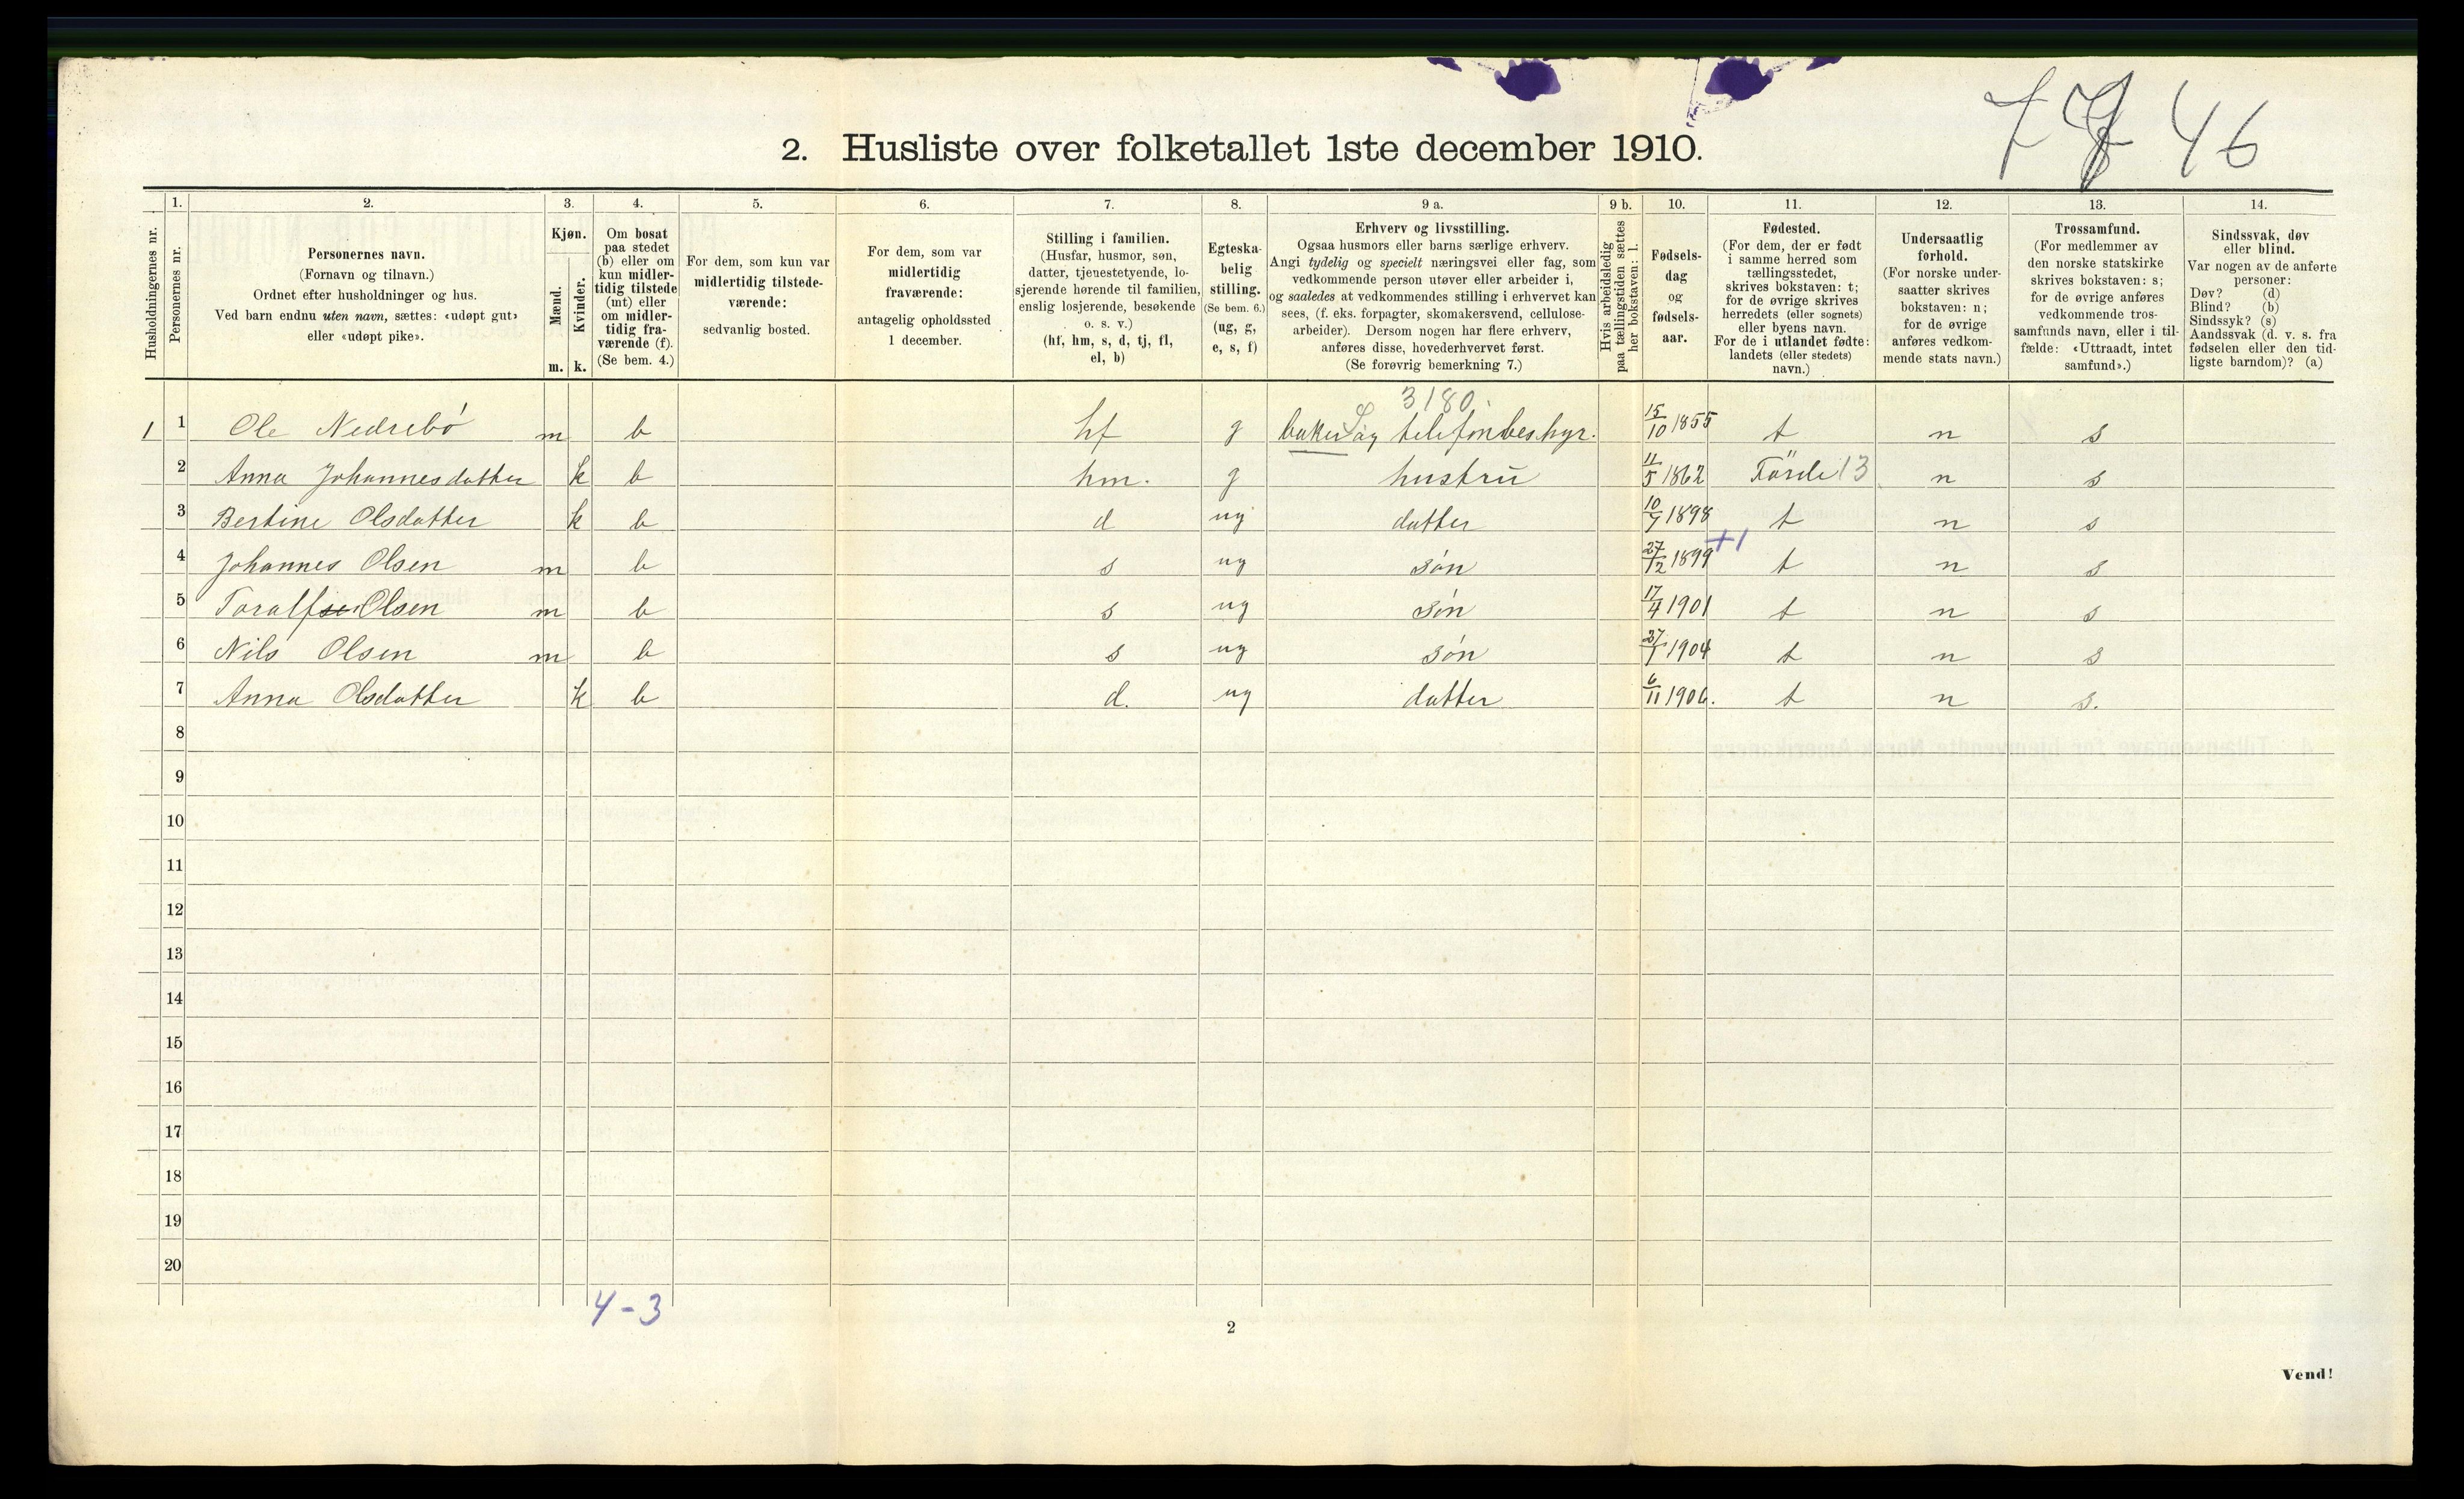 7 46
2. Husliste over folketallet 1ste december 1910.
Husholdningernes nr.
1.
Personernes nr.
2.
Personernes navn.
(Fornavn og tilnavn.)
Ordnet efter husholdninger og hus.
Ved barn endnu uten navn, sættes: «udøpt gut»
eller «udøpt pike».
3.
Kjøn.
Mænd.
Kvinder.
m. k.
4.
Om bosat
paa stedet
(b) eller om
kun midler-
tidig tilstede
(mt) eller
om midler-
tidig fra-
værende (f).
(Se bem. 4.)
5.
For dem, som kun var
midlertidig tilstede-
værende:
sedvanlig bosted.
6.
For dem, som var
midlertidig
fraværende:
antagelig opholdssted
1 december.
7.
Stilling i familien.
(Husfar, husmor, søn,
datter, tjenestetyende, lo-
sjerende hørende til familien,
enslig losjerende, besøkende
o. s. v.)
(hf, hm, s, d, tj, fl,
el, b)
8.
Egteska-
belig
stilling.
(Se bem. 6.)
(ug, g,
e, s, f)
9 a.
Erhverv og livsstilling.
Ogsaa husmors eller barns særlige erhverv.
Angi tydelig og specielt næringsvei eller fag, som
vedkommende person utøver eller arbeider i,
og saaledes at vedkommendes stilling i erhvervet kan
sees, (f. eks. forpagter, skomakersvend, cellulose-
arbeider). Dersom nogen har flere erhverv,
anføres disse, hovederhvervet først.
(Se forøvrig bemerkning 7.)
9 b.
Hvis arbeidsledig
paa tællingstiden sættes
her bokstaven: l.
10.
Fødsels-
dag
og
fødsels-
aar.
11.
Fødested.
(For dem, der er født
i samme herred som
tællingsstedet,
skrives bokstaven: t;
for de øvrige skrives
herredets (eller sognets)
eller byens navn.
For de i utlandet fødte:
landets (eller stedets)
navn.)
12.
Undersaatlig
forhold.
(For norske under-
saatter skrives
bokstaven: n;
for de øvrige
anføres vedkom-
mende stats navn.)
13.
Trossamfund.
(For medlemmer av
den norske statskirke
skrives bokstaven: s;
for de øvrige anføres
vedkommende tros-
samfunds navn, eller i til-
fælde: «Uttraadt, intet
samfund».)
14.
Sindssvak, døv
eller blind.
Var nogen av de anførte
personer:
Døv? (d)
Blind? (b)
Sindssyk? (s)
Aandssvak (d. v. s. fra
fødselen eller den tid-
ligste barndom)? (a)
3180.
1 1 Ole Nedrebó m b hf g baker og telefonbestyr. 15/10 1855 t n s
2 Anna Johannesdatter k b hm. g hustru 11/5 1862 Förde 13 n s
3 Bertine Olsdatter k b d ug datter 10/9 1898 t n s
+1
4 Johannes Olsen m b s ug søn 27/12 1899 t n s
5 Toralf Olsen m b s ug søn 17/4 1901 t n s
6 Nils Olsen m b s ug søn 27/1 1904 t n s
7 Anna Olsdatter k b d. ug datter 6/11 1906. t n s.
8
9
10
11
12
13
14
15
16
17
18
19
20
4-3
2
Vend!